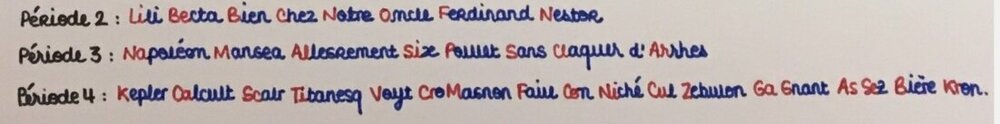 Période 2 : Lili Becta Bien Chez Notre Oncle Ferdinand Nestor
Période 3 : Napoléon Mangea Allegrement Six Poulet Sans Claquer d' Arrhes
Période 4 : Kepler Calcult Scair Titanesq Voyt CroMagnon Faiie Con Niché Cul Zebulon Ga Gnant As Sez Bière Kron.